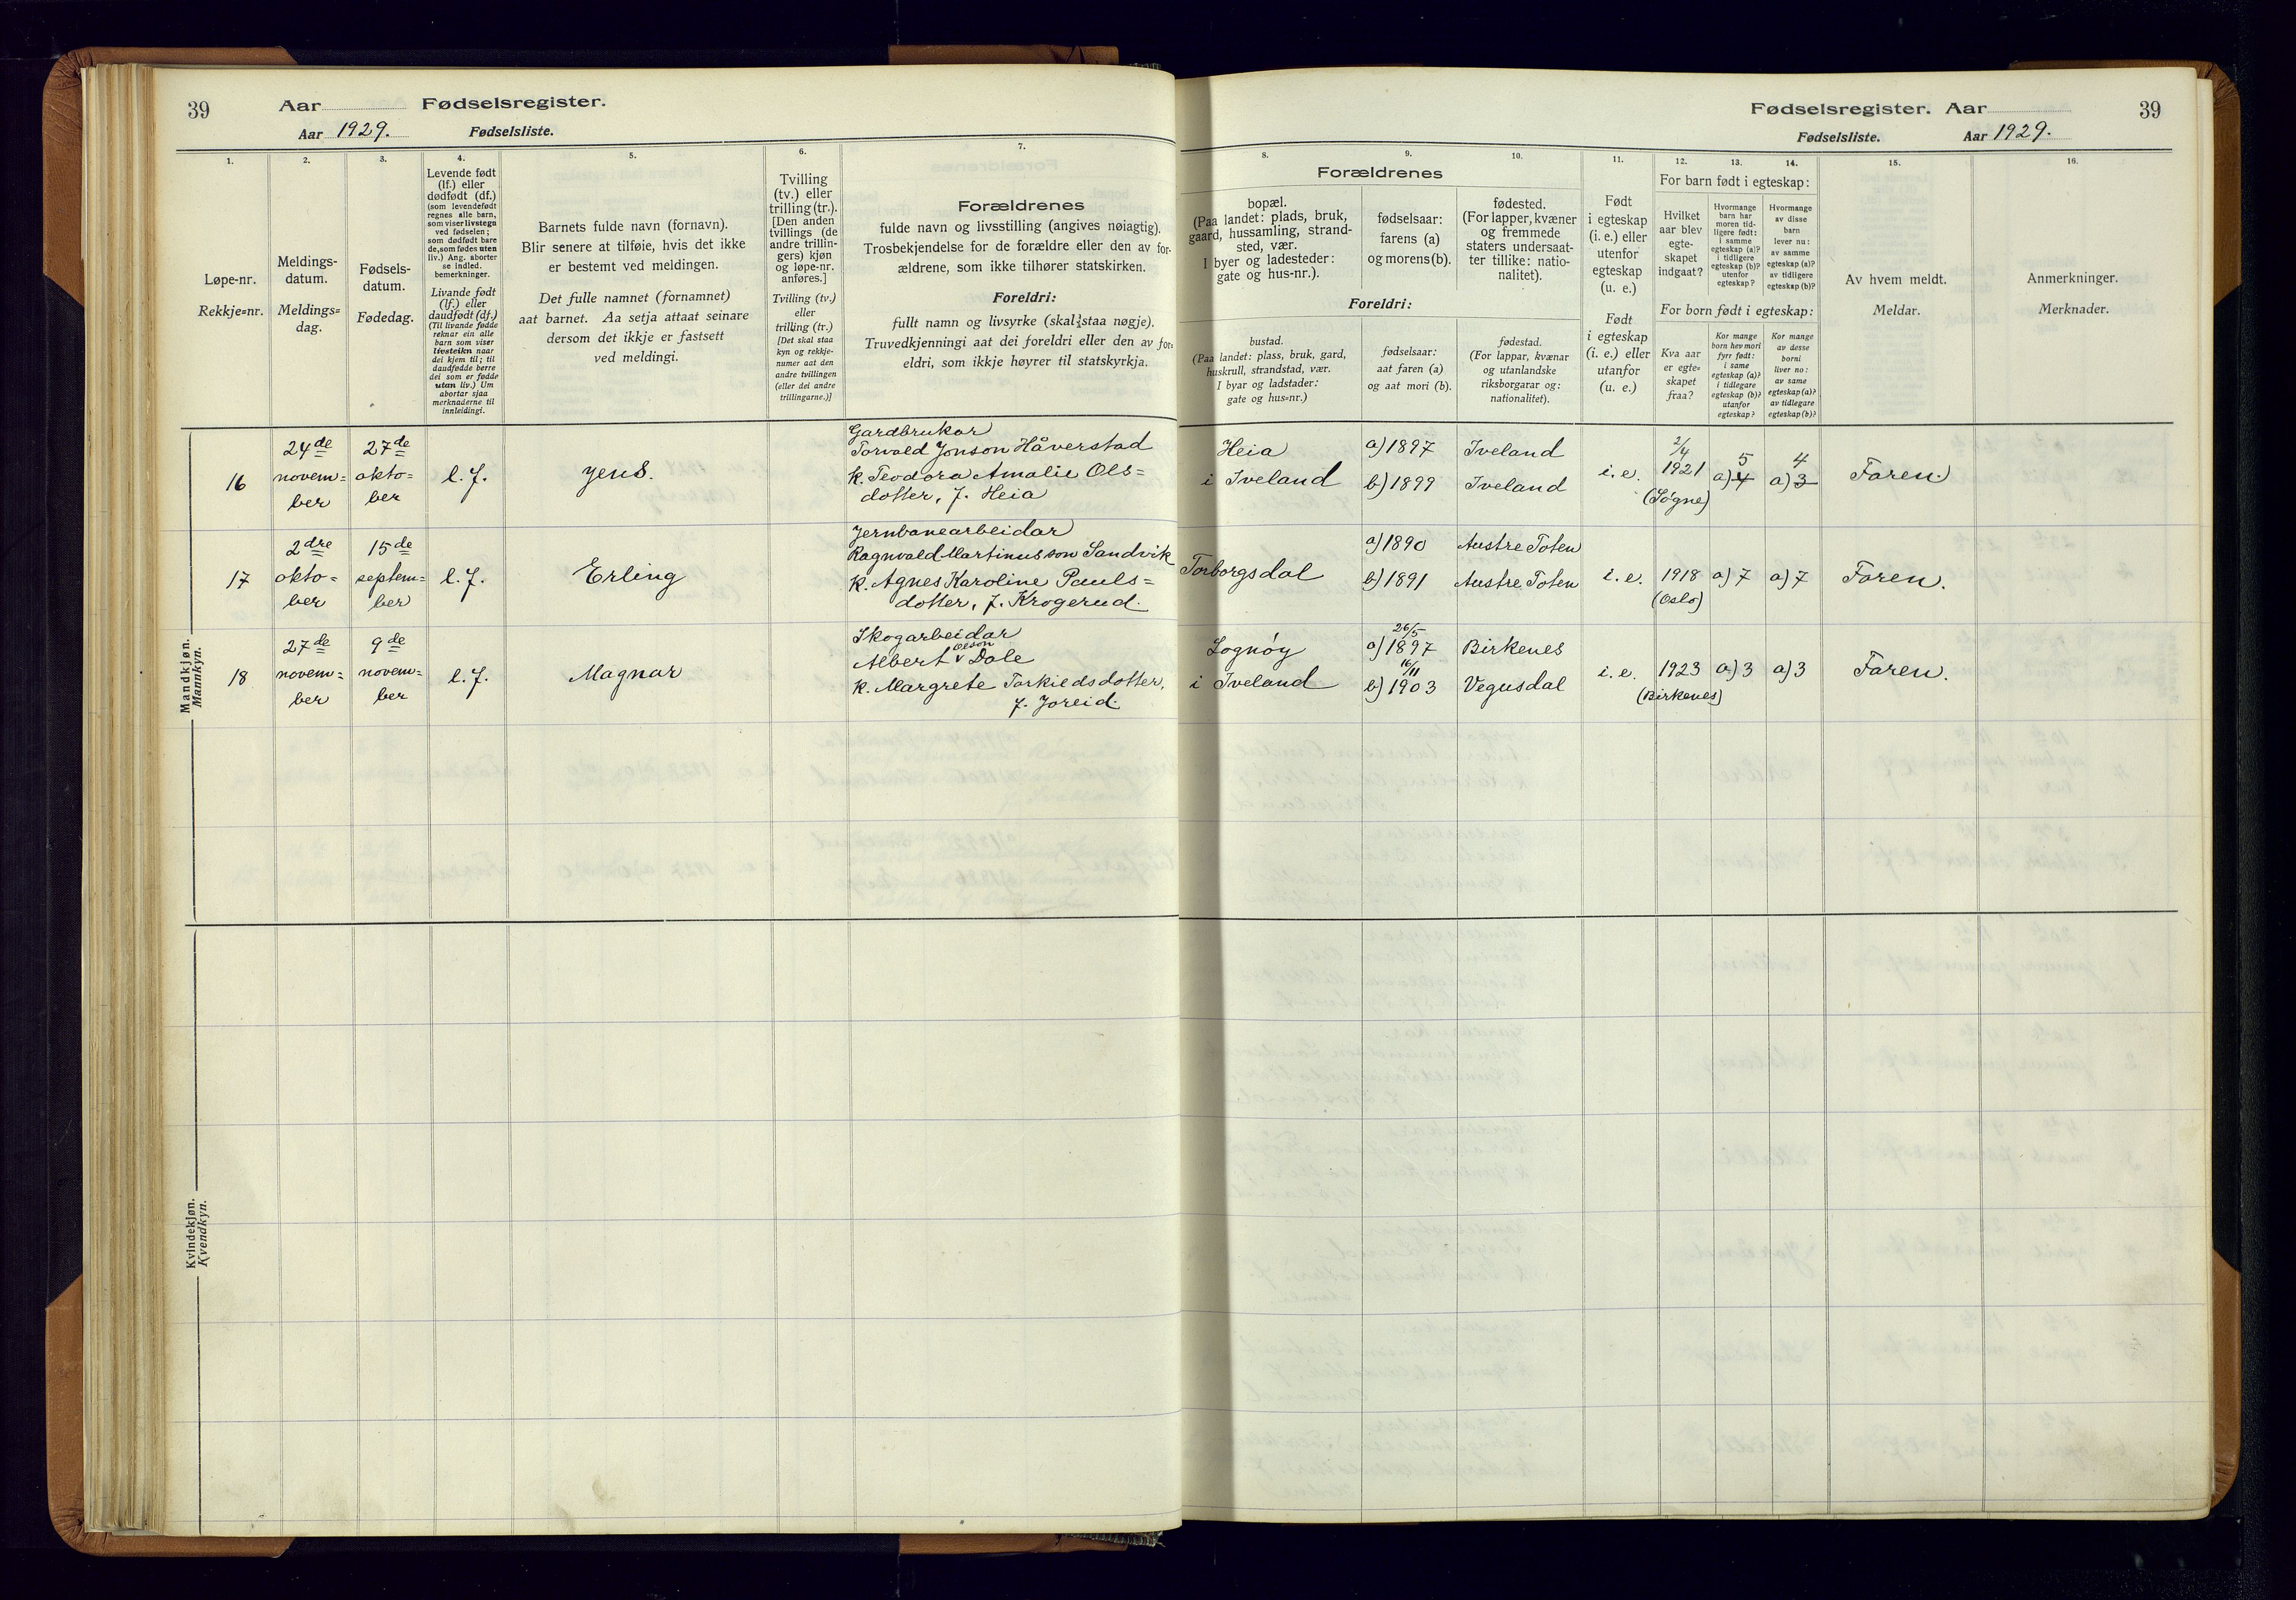 39
Aar
Fødselsregister.
Aar 1929.
Fødselsliste.
1.
2.
3.
4.
5.
6.
7.
Løpe-nr.
Rekkje=nr.
Meldings-
datum.
Meldings=
dag.
Fødsels-
datum.
Fødedag.
Levende født
(lf.) eller
dødfødt (df.)
(som levendefødt
regnes alle barn,
som viser livstegn
ved fødselen;
som dødfødt bare
de, som fødes uten
liv.) Ang. aborter
se indled.
bemerkninger.
Livande født
(lf.) eller
daudfødt (df.)
(Til livande fødde
reknar ein alle
barn som viser
livsteikn naar
dei kjem til; til
daudfødde berre
dei som er fødde
utan liv.) Um
abortar sjaa
merknaderne til
innleidingi.
Barnets fulde navn (fornavn).
Blir senere at tilføie, hvis det ikke
er bestemt ved meldingen.
Det fulle namnet (fornamnet)
aat barnet. Aa setja attaat seinare
dersom det ikkje er fastsett
ved meldingi.
Tvilling
(tv.) eller
trilling (tr.).
[Den anden
tvillings (de
andre trillin-
gers) kjøn
og løpe-nr.
anføres.]
Tvilling (tv.)
eller
trilling (tr.)
[Det skal staa
kyn og rekkje-
numer aat den
andre tvillingen
(eller dei andre
trillingarne.)]
Forældrenes
fulde navn og livsstilling (angives nøiagtig).
Trosbekjendelse for de forældre eller den av for-
ældrene, som ikke tilhører statskirken.
Foreldri:
fullt namn og livsyrke (skal staa nøgje).
Truvedkjenningi aat dei foreldri eller den av for-
eldri, som ikkje høyrer til statskyrkja.
Mandkjøn.
Mannkyn.
16
24de
novem=
ber
27de
okto=
ber
l. f.
Jens.
Gardbrukar
Torvald Jonson Håverstad
k. Teodora Amalie Ols=
dotter, f. Heia
17
2dre
okto=
ber
15de
septem=
ber
l. f.
Erling
Jernbanearbeidar
Ragnvald Martinusson Sandvik
k. Agnes Karoline Pauls=
dotter, f. Krogerud.
18
27de
novem=
ber
9de
novem=
ber
l. f.
Magnar
Skogarbeidar
Olson
Albert v Dale
k. Margrete Torkieldsdotter,
f. Joreid.
Kvindekjøn.
Kvendkyn.
Fødselsregister. Aar
39
Fødselsliste.
Aar 1929.
8.
9.
10.
11.
12.
13.
14.
15.
16.
Forældrenes
bopæl.
(Paa landet: plads, bruk,
gaard, hussamling, strand-
sted, vær.
I byer og ladesteder:
gate og hus-nr.).
fødselsaar:
farens (a)
og morens (b).
fødested.
(For lapper, kvæner
og fremmede
staters undersaat-
ter tillike: natio-
nalitet).
Foreldri:
bustad.
(Paa landet: plass, bruk, gard,
huskrull, strandstad, vær.
I byar og ladstader:
gate og hus=nr.)
fødselsaar:
aat faren (a)
og aat mori (b).
fødestad.
(For lappar, kvænar
og utanlandske
riksborgarar og:
nationalitet).
Født
i egteskap
(i. e.) eller
utenfor
egteskap
(u. e.)
Født
i egteskap
(i. e.) eller
utanfor
(u. e.)
For barn født i egteskap:
Hvilket
aar blev
egte-
skapet
indgaat?
Hvormange
barn har
moren tid-
ligere født:
i samme
egteskap (a)?
i tidligere
egteskap (b)?
utenfor
egteskap?
Hvormange
av disse
barn
lever nu:
av samme
egteskap (a)?
av tidligere
egteskap (b)?
For born født i egteskap:
Kva aar
er egte=
skapet
fraa?
Kor mange
born hev mori
fyrr født:
i same
egteskap (a)?
i tidlegare
egteskap (b)?
utanfor
egteskap?
Kor mange
av desse
borni
liver no:
av same
egteskap (a)?
av tidlegare
egteskap (b)?
Av hvem meldt.
Meldar.
Anmerkninger.
Merknader.
Heia
i Iveland
a) 1897
b) 1899
Iveland
Iveland
i. e.
2/4
1921
(Søgne)
5
a) 4
4
a) 3
Faren.
Torborgsdal
a) 1890
b) 1891
Austre Toten
Austre Toten
i. e.
1918
(Oslo)
a) 7
a) 7
Faren.
Lognøy
i Iveland
26/5
a) 1897
16/11
b) 1903
Birkenes
Vegusdal
i. e.
1923
(Birkenes)
a) 3
a) 3
Faren.